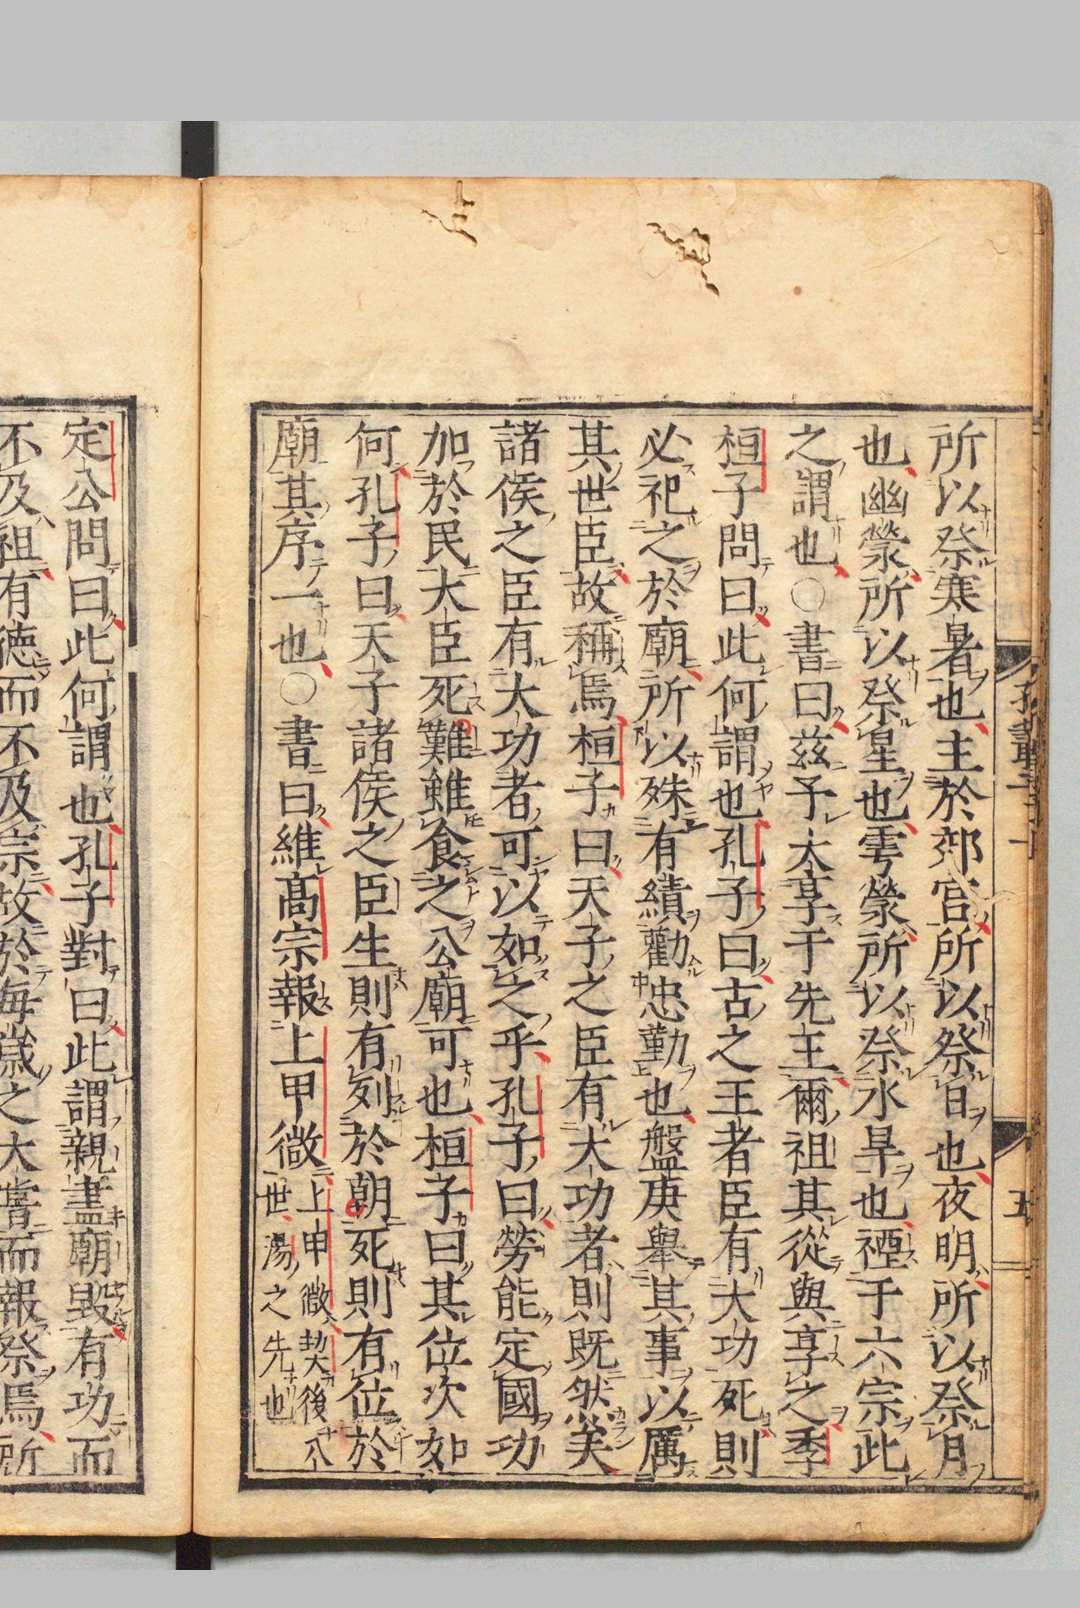 所以祭寒暑也主於郊宫所以祭日也夜明所以祭月
也幽禜所以祭星也雩禜所以祭水旱也禋于六宗此
之謂也○書曰兹予大享于先王爾祖其從與享之季
桓子問曰此何謂也孔子曰古之王者臣有大功死則
必祀之於廟所以殊有績勸忠勤也盤庚舉其事以厲
其世臣故稱焉桓子曰天子之臣有大功者則既然矣
諸侯之臣有大功者可以如之乎孔子曰勞能定國功
加於民大臣死難雖食之公廟可也桓子曰其位次如
何孔子曰天子諸侯之臣生則有列於朝死則有位於
廟其序一也○書曰維髙宗報上甲微上甲微契後八
世湯之先也
定公問曰此何謂也孔子對曰此謂親盡廟毀有功而
不及祖有德而不及宗故於每歲之大嘗而報祭焉所
孔叢子上
五